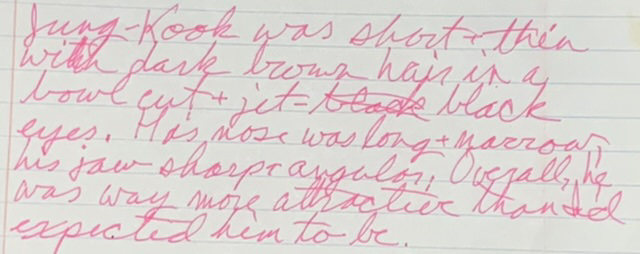 Jung-Kook was short + thin
with dark brown hair in a
bowl cut + jet-black black
eyes. His nose was long + narrow,
his jaw sharp + angular. Overall, he
was way more attractive than I'd
expected him to be.